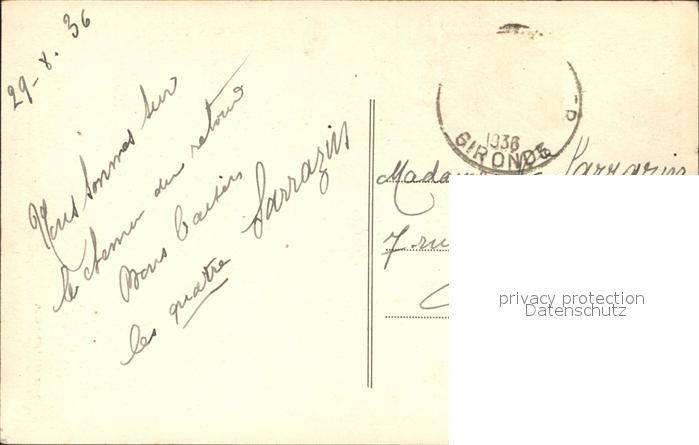 29-8. 36
Nous sommes sur
le chemin du retour
Bons baisers
les quatre Sarrazin
1936
GIRONDE
Madame Sarrazin
7 ru
privacy protection
Datenschutz